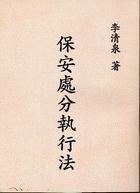 李清泉 著
保安處分執行法